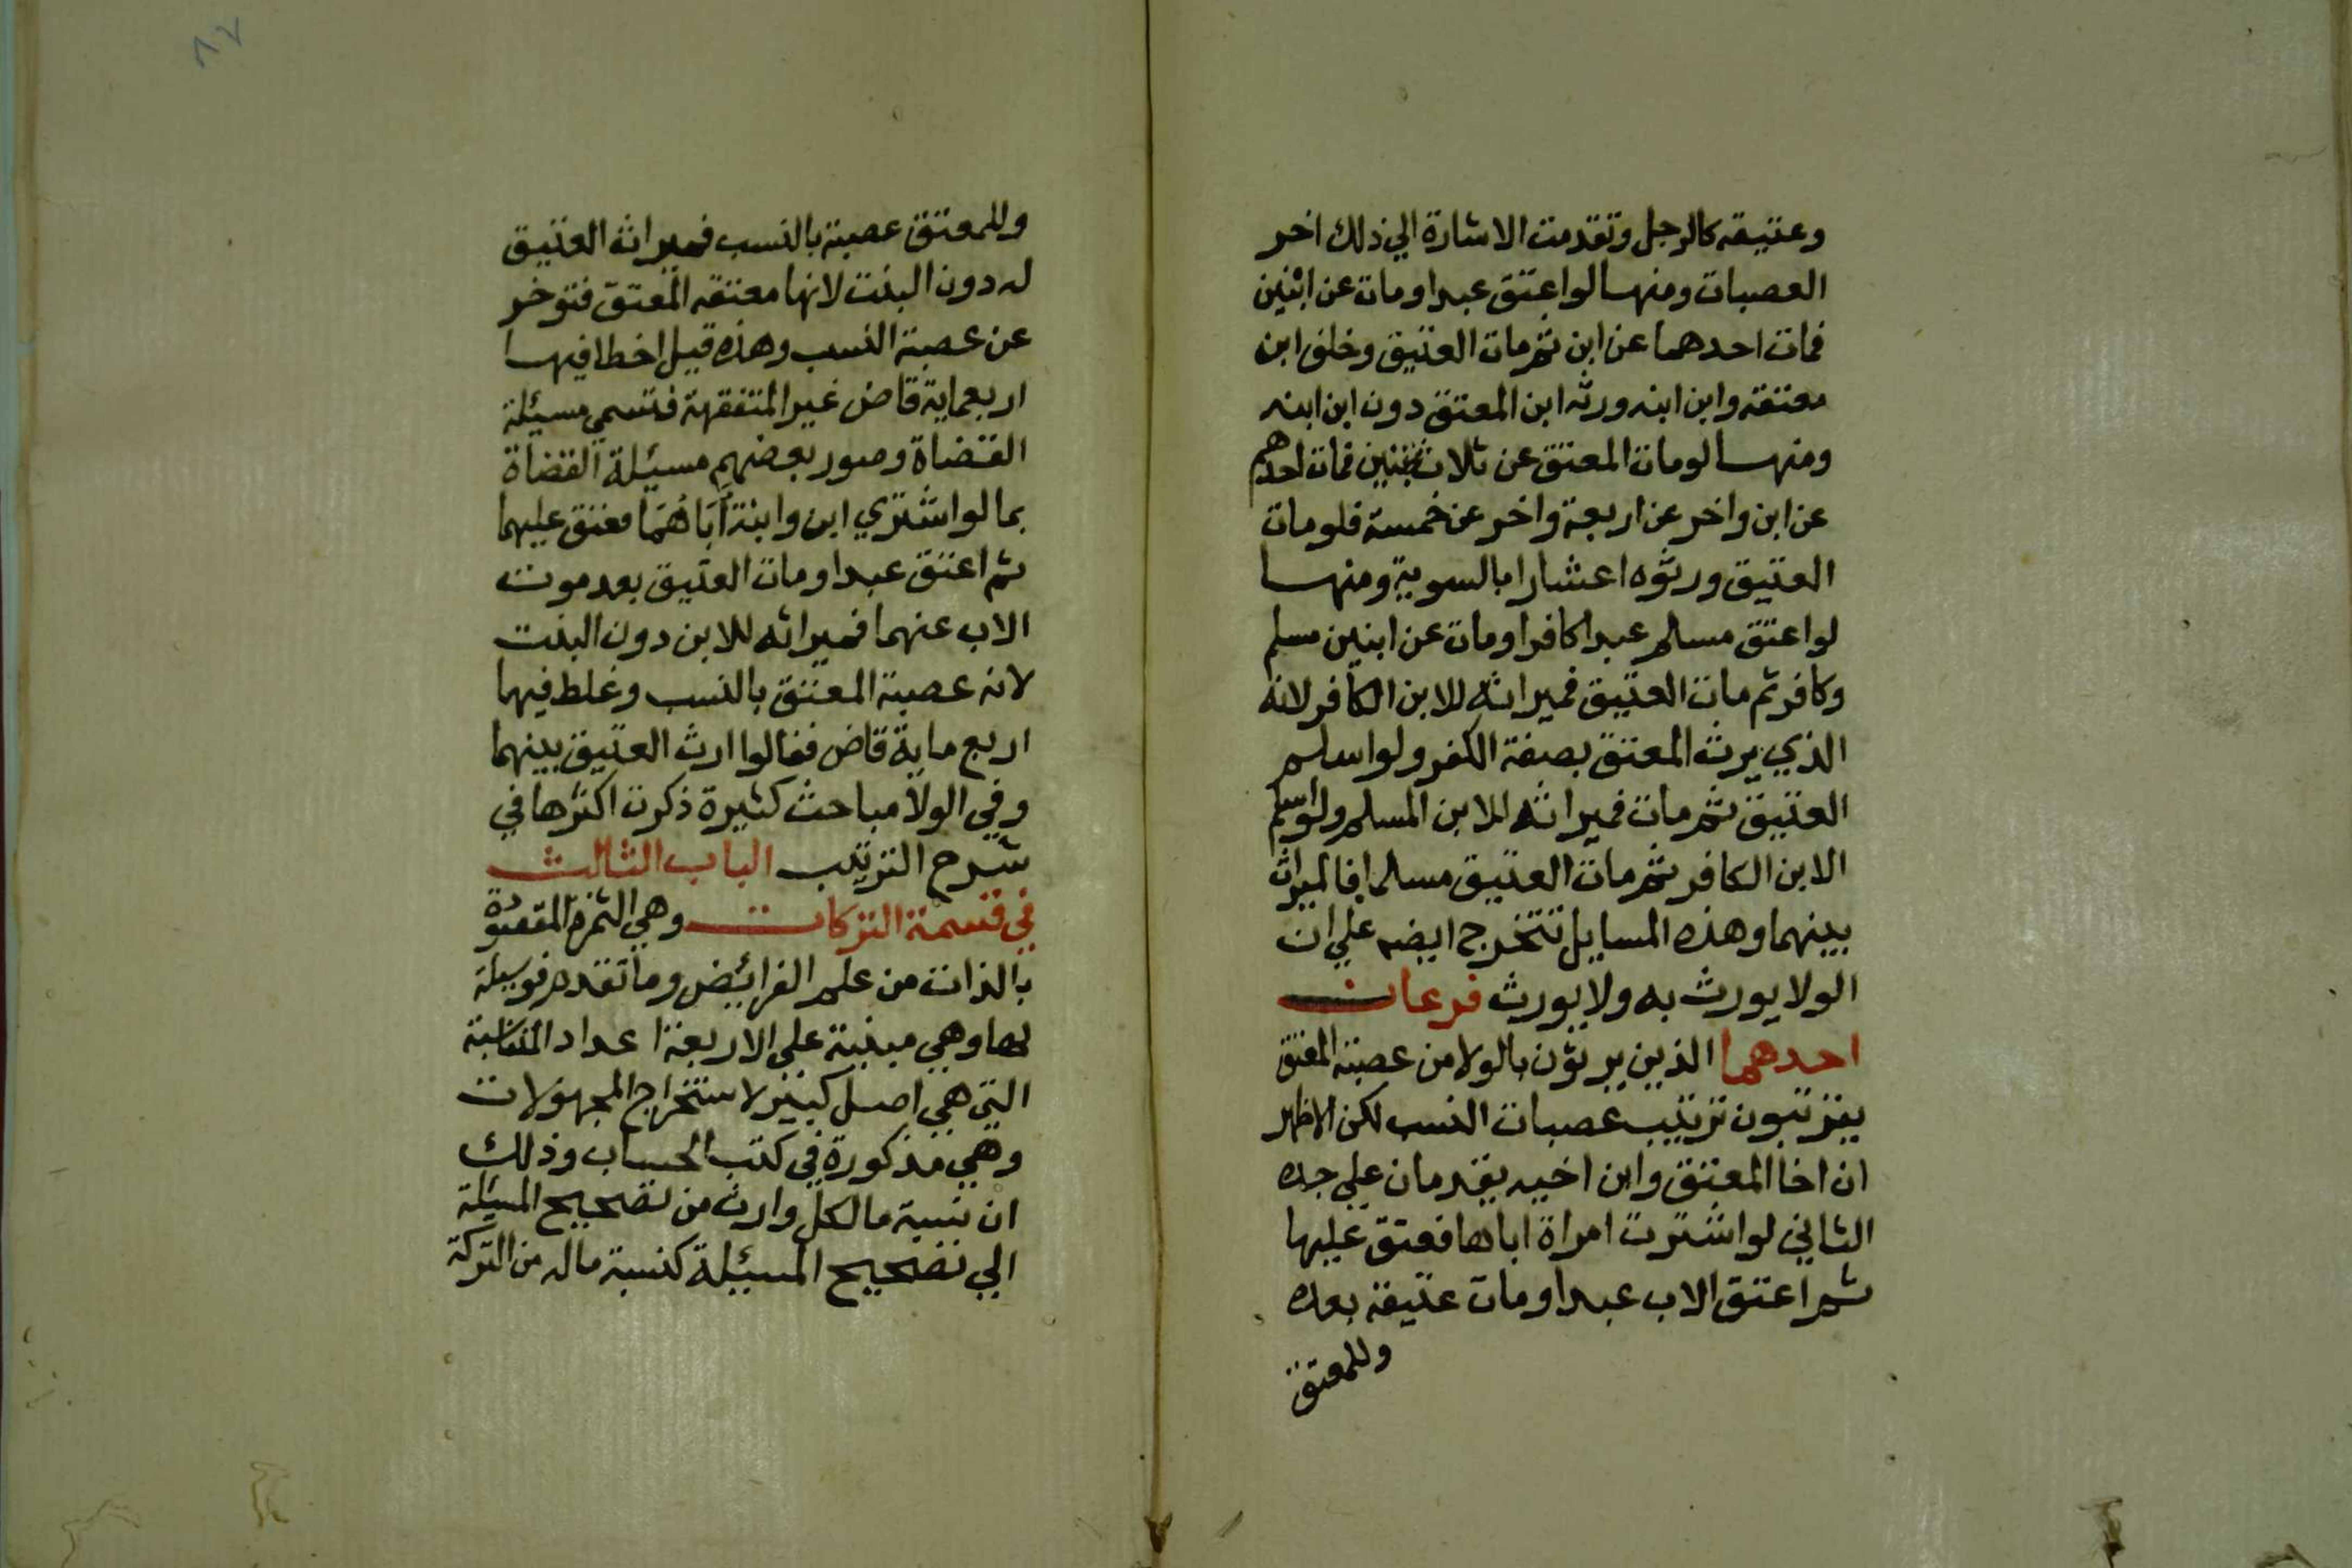 وعتيقه كالرجل وتقدمت الاشارة الي ذلك اخر
العصبات ومنها لو اعتق عبدا ومات عن ابنين
فمات احدهما عن ابن ثم مات العتيق وخلف ابن
معتقه وابن ابنه ورثه ابن المعتق دون ابن ابنه
ومنها لو مات المعتق عن ثلاث بنين فمات احدهم
عن ابن واخر عن اربعة واخر عن خمسة فلو مات
العتيق ورثوه اعشارا بالسوية ومنها
لو اعتق مسلم عبدا كافرا ومات عن ابنين مسلم
وكافر ثم مات العتيق فميراثه للابن الكافر لانه
الذي يرث المعتق بصفة الكفر ولو اسلم
العتيق ثم مات فميراثه للابن المسلم ولو اسلم
الابن الكافر ثم مات العتيق مسلما فالميراث
بينهما وهذه المسايل تتخرج ايضا علي ان
الولا يورث به ولا يورث فرعان
احدهما الذين يرثون بالولا من عصبة المعتق
يترتبون ترتيب عصبات النسب لكن الاظهر
ان اخا المعتق وابن اخيه يقدمان علي جده
الثاني لو اشترت امراة اباها فعتق عليها
ثم اعتق الاب عبدا ومات عتيقه بعده
وللمعتق
٨٧
وللمعتق عصبة بالنسب فميراث العتيق
له دون البنت لانها معتقه المعتق فتوخر
عن عصبة النسب وهذه قيل اخطا فيها
اربعماية قاض غير المتفقهة فتسمي مسيلة
القضاة وصور بعضهم مسيلة القضاة
بما لو اشتري ابن وابنة اباهما فعتق عليهما
ثم اعتق عبدا ومات العتيق بعد موت
الاب عنهما فميراثه للابن دون البنت
لانه عصبة المعتق بالنسب وغلط فيها
اربع ماية قاض فقالوا ارث العتيق بينهما
وفي الولا مباحث كثيرة ذكرت اكثرها في
شرح الترتيب الباب الثالث
في قسمة التركات وهي الثمرة المقصودة
بالذات من علم الفرائيض وما تقدم فوسيلة
لها وهي مبنية علي الاربعة اعداد المتناسبة
التي هي اصل كبير لاستخراج المجهولات
وهي مذكورة في كتب الحساب وذلك
ان نسبة ما لكل وارث من تصحيح المسيلة
الي تصحيح المسيئلة كنسبة ماله من التركة